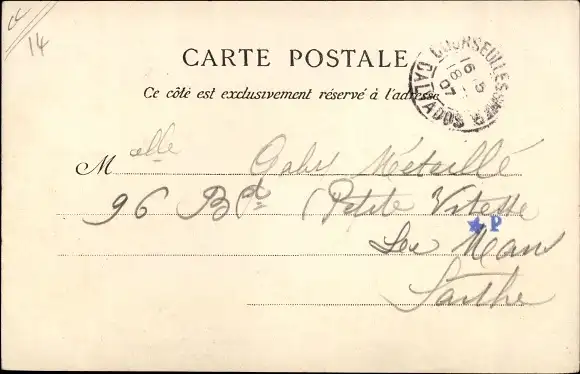 14
CARTE POSTALE
Ce côté est exclusivement réservé à l'adresse
COURSEULLES-S-MER
16-5
07
CALVADOS
Melle Gabr Métaillé
96 Bd Petite Vitesse
P
Le Mans
Sarthe